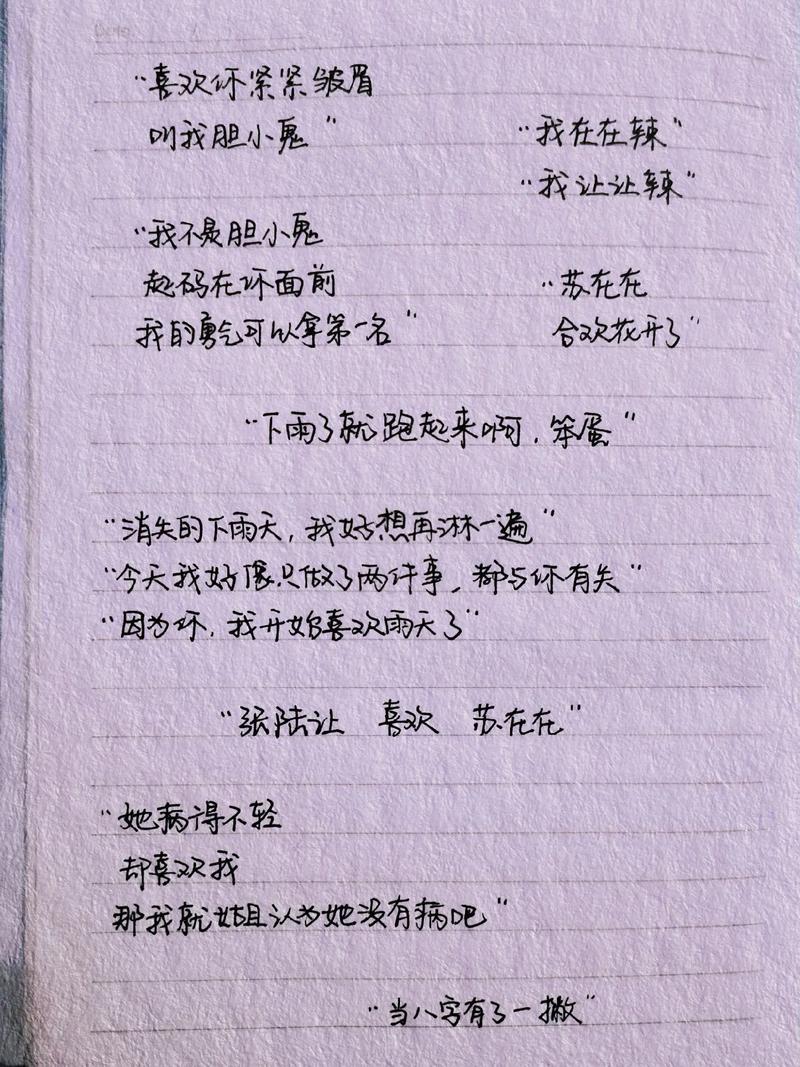 "喜欢你紧紧皱眉
叫我胆小鬼"
"我在在辣"
"我让让辣"
"我不是胆小鬼
起码在你面前
我的勇气可以拿第一名"
"苏在在
合欢花开了"
"下雨了就跑起来啊，笨蛋"
"消失的下雨天，我好想再淋一遍"
"今天我好像只做了两件事，都与你有关"
"因为你，我开始喜欢雨天了"
"张陆让 喜欢 苏在在"
"她病得不轻
却喜欢我
那我就姑且认为她没有病吧"
"当八字有了一撇"